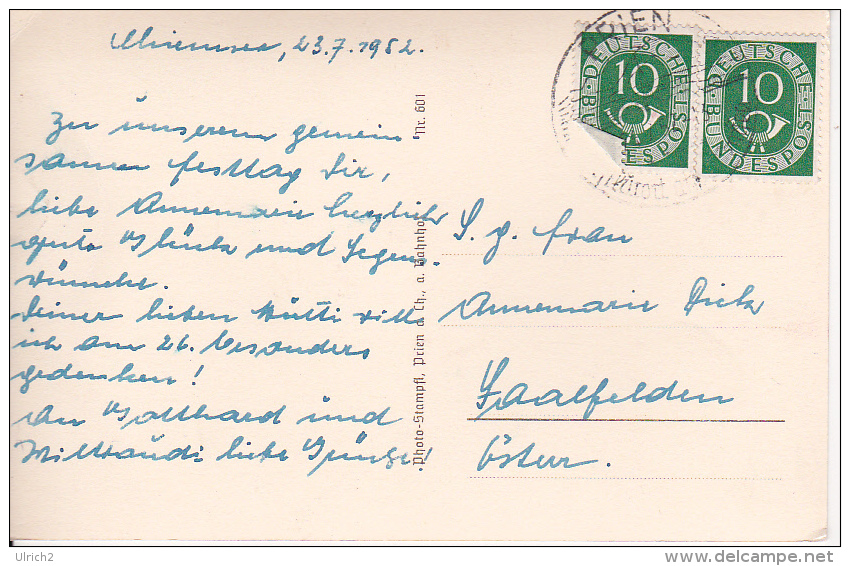 Chiemsee, 23.7.1952.
Zu unserem gemein
samen Festtag Dir,
liebe Annemarie herzliche
gute Glück und Segen-
wünsche.
Deiner lieben Mutti will
ich am 26. besonders
gedenken!
An Gotthard und
Wiltraud: liebe Grüße!
Nr. 601
Photo-Stampfl, Prien a. Ch., a. Bahnhof
PRIEN
DEUTSCHE BUNDESPOST
10
DEUTSCHE BUNDESPOST
10
S. g. Frau
Annemarie Dick
Saalfelden
Österr.
Ulrich2
www.delcampe.net